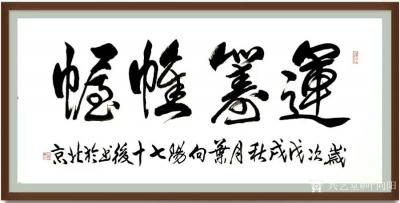 運籌帷幄
歲次戊戌秋月葉向陽七十後書於北京